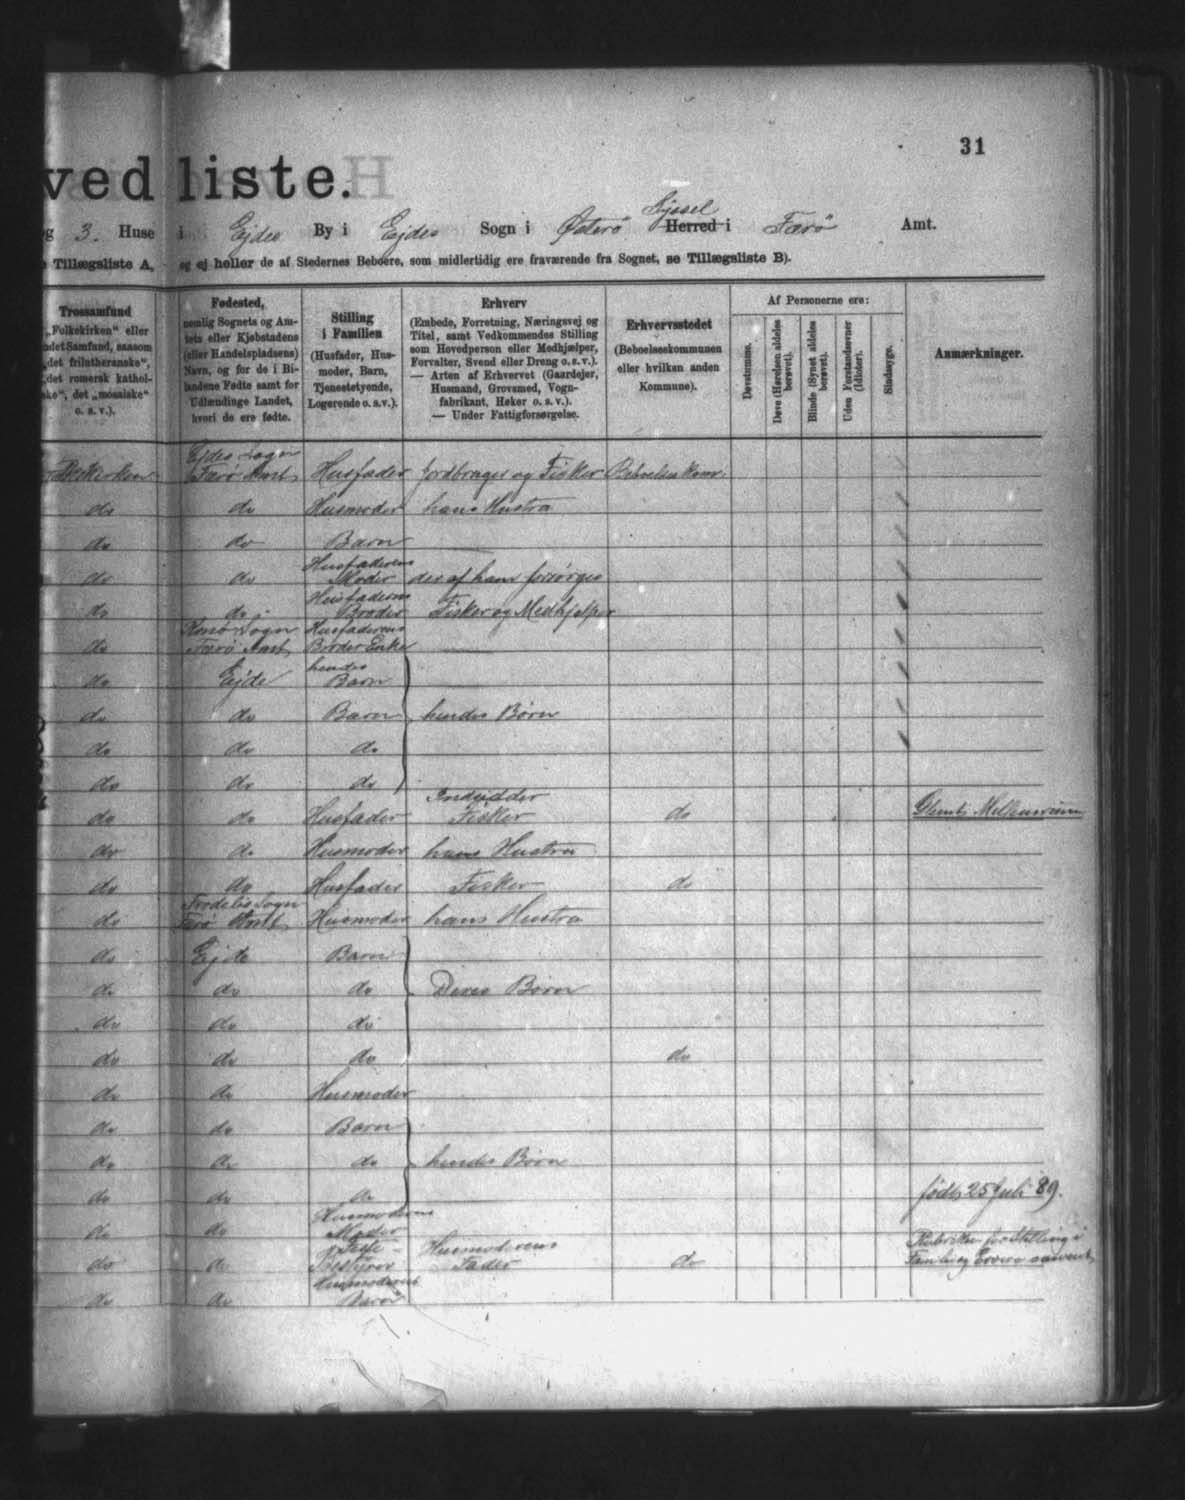 31
ved liste.
og 3. Huse i Ejde By i Ejde Sogn i Østerø Syssel Herred i Færø Amt.
Tillægsliste A, og ej heller de af Stedernes Beboere, som midlertidig ere fraværende fra Sognet, se Tillægsliste B).
Trossamfund
„Folkekirken“ eller
andet Samfund, saasom
„det frilutheranske“,
„det romersk kathol-
ske“, det „mosaiske“
o. s. v.).
Fødested,
nemlig Sognets og Am-
tets eller Kjøbstadens
(eller Handelspladsens)
Navn, og for de i Bi-
landene Fødte samt for
Udlændinge Landet,
hvori de ere fødte.
Stilling
i Familien
(Husfader, Hus-
moder, Barn,
Tjenestetyende,
Logerende o. s. v.).
Erhverv
(Embede, Forretning, Næringsvej og
Titel, samt Vedkommendes Stilling
som Hovedperson eller Medhjælper,
Forvalter, Svend eller Dreng o. s. v.).
— Arten af Erhvervet (Gaardejer,
Husmand, Grovsmed, Vogn-
fabrikant, Høker o. s. v.).
— Under Fattigforsørgelse.
Erhvervsstedet
(Beboelseskommunen
eller hvilken anden
Kommune).
Af Personerne ere:
Døvstumme.
Døve (Hørelsen aldeles
berøvet).
Blinde (Synet aldeles
berøvet).
Uden Forstandsevner
(Idioter).
Sindssyge.
Anmærkninger.
Folkekirken Ejdes Sogn Færø Amt Husfader Jordbruger og Fisker Beboelseskom.
do do Husmoder hans Hustru
do do Barn
do do Husfaderens Moder der af ham forsørges
do do Husfaderens Broder Fisker og Medhjelper
do Sogn Færø Amt Husfaderens Broder Enke
do Ejde hendes Barn
do do Barn hendes Børn
do do do
do do do
do do Husfader Indsidder Fisker do
do do Husmoder hans Hustru
do do Husfader Fisker do
do Sogn Færø Amt Husmoder hans Hustru
do Ejde Barn
do do do Deres Børn
do do do
do do do do
do do Husmoder
do do Barn
do do do hendes Børn
do do do født 25 Juli 89.
do do Husmoderens Moder
do do Bestyrer Husmoderens Fader do Rubriken for Stilling i
do do Husmoderens Barn